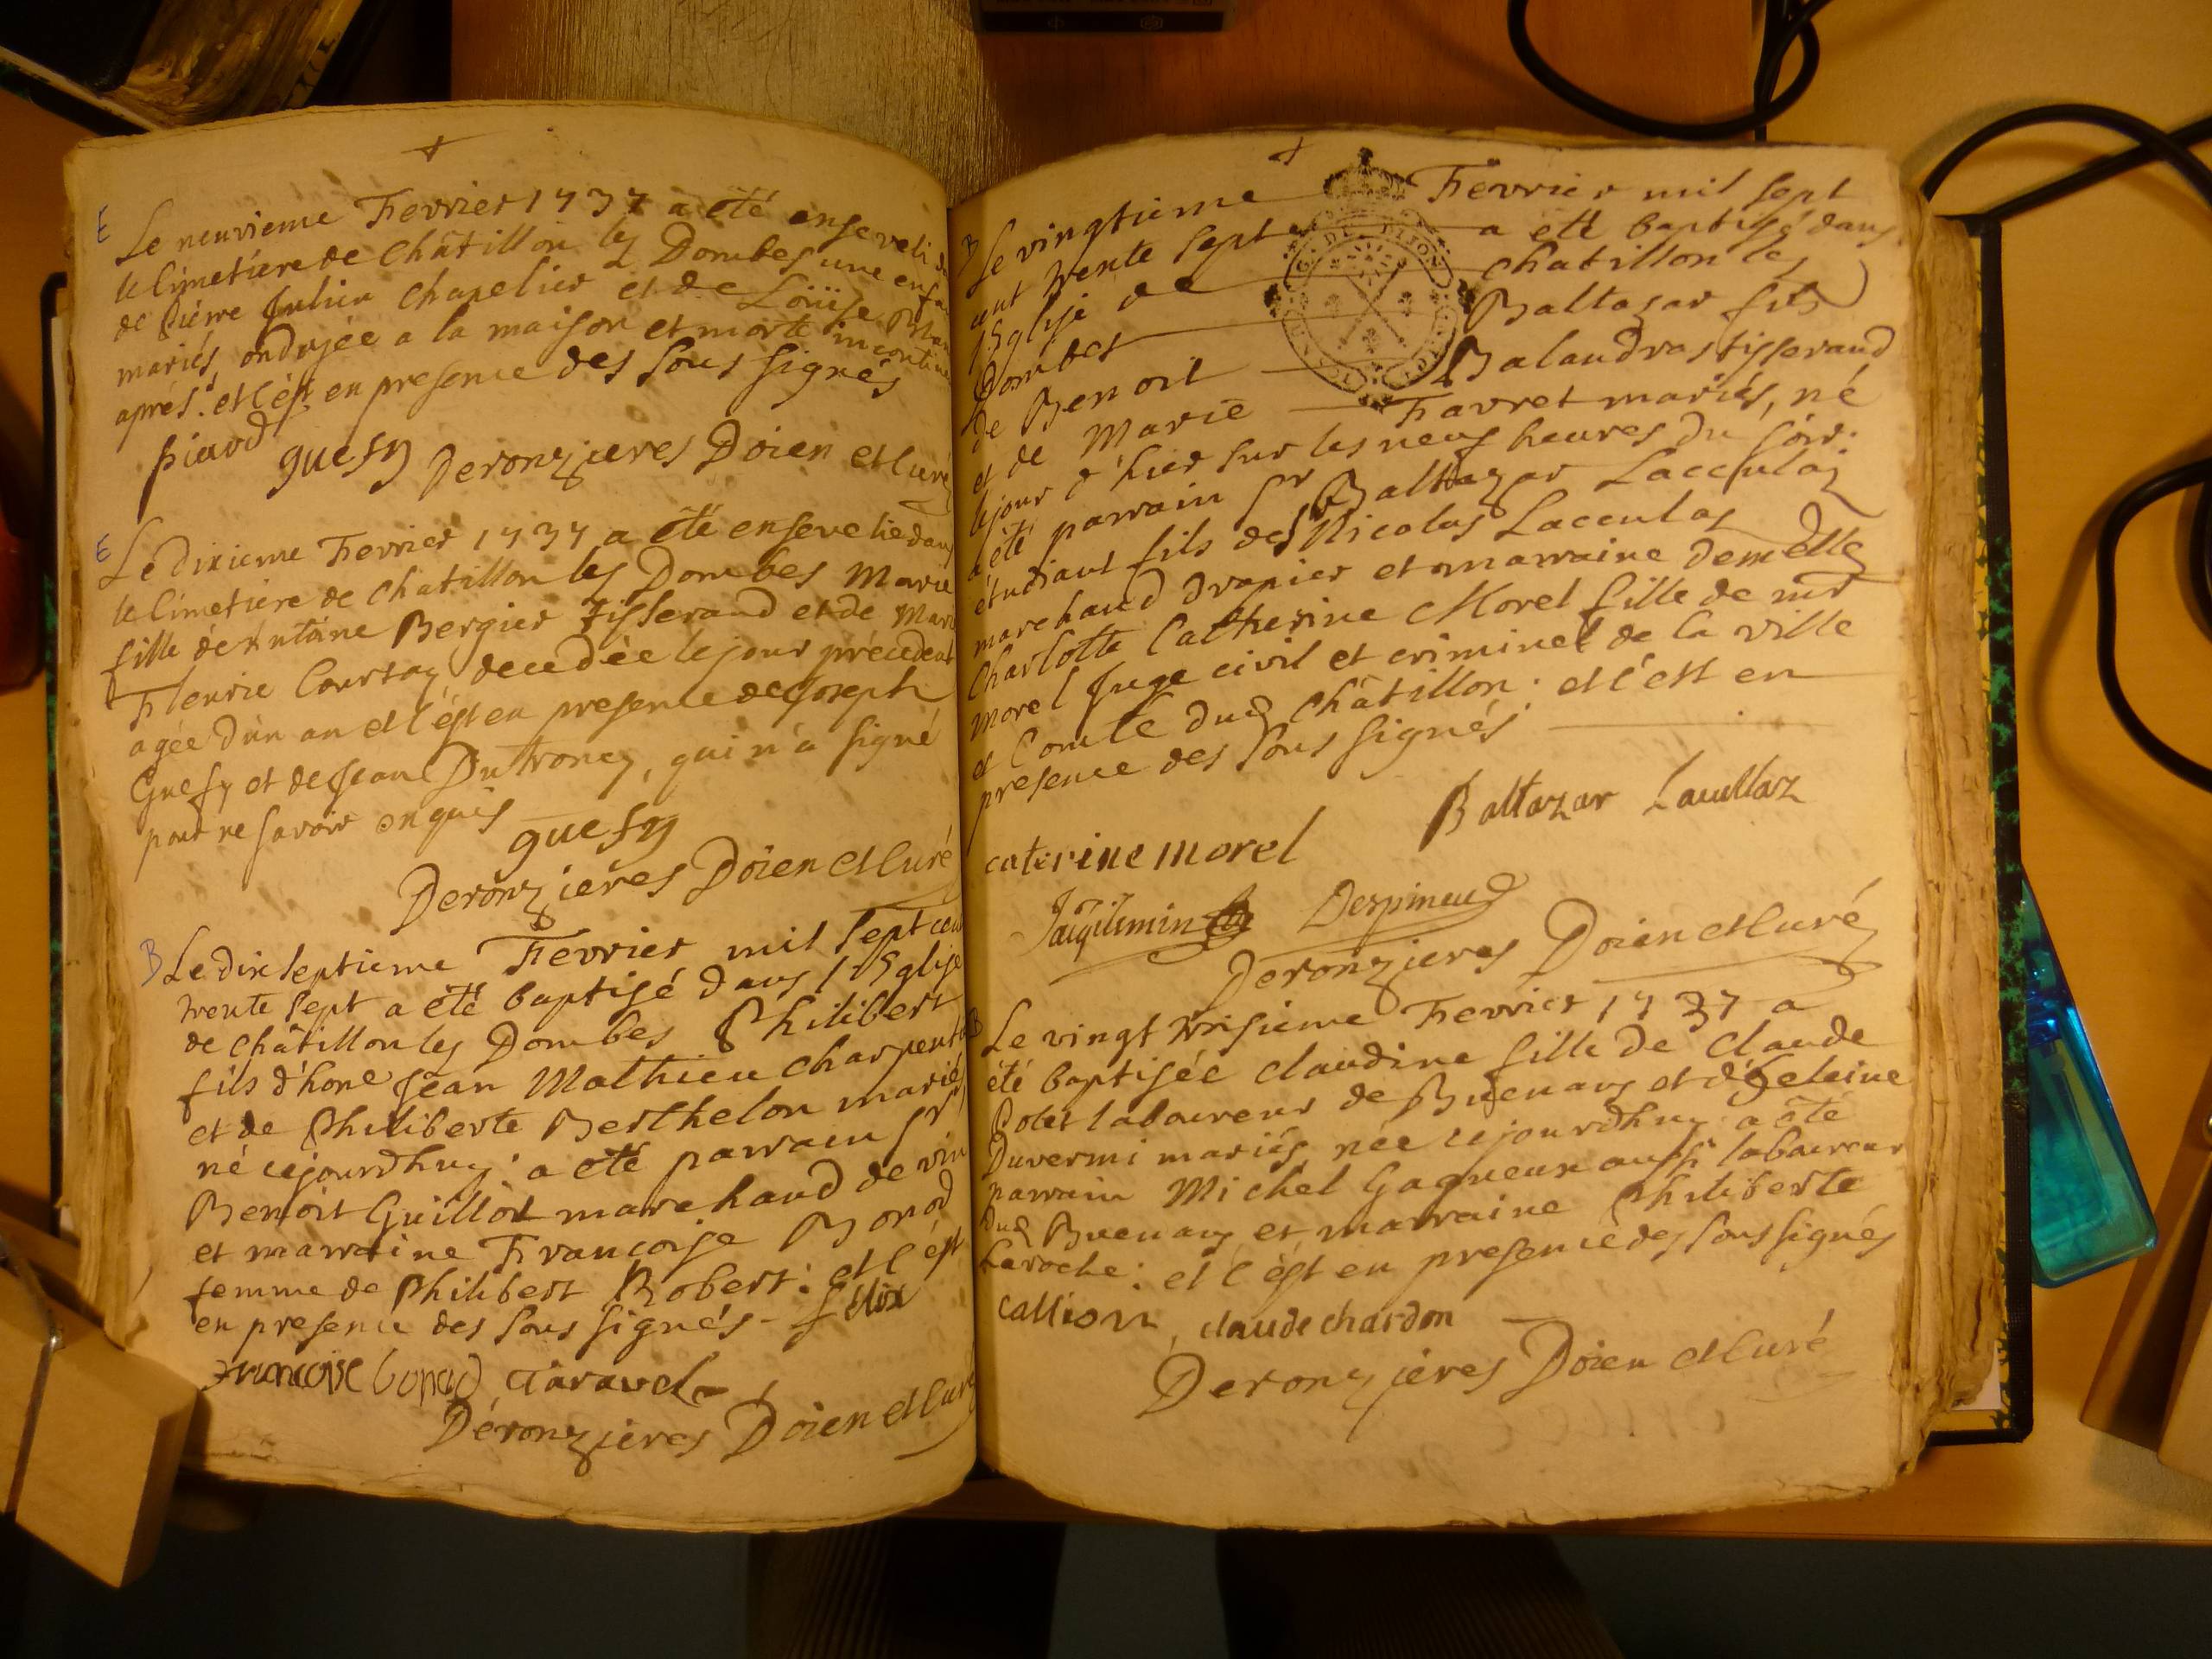 E
Le neuvieme Fevrier 1737 a été enseveli dans
le Cimetiere de Châtillon les Dombes une enfan
de Piérre Julien Chapelier et de Loüise
mariés, ondojée a la maison et morte incontinen
aprés. et c'ést en presence des sous signés
piard guesy Deronzieres Doien et Curé
E
Le dixieme Fevrier 1737 a été ensevelie dans
le Cimetiere de Chatillon les Dombes Marie
fille de Bergier Tisserand et de Mari
Fleurie Courtay decedée le jour précedent
agée d'un an et c'ést en presence de Joseph
Guesy et de Jean Dutroncy, qui n'a signé
pour ne savoir enquis
guesy
Deronzieres Doien et Curé
B
Le dix septieme Fevrier mil sept cen
trente sept a été baptisé dans l'Eglise
de Châtillon les Dombes Philibert
fils d'hone Jean Mathieu charpenti
et de Philiberte Berthelon mariés
né cejourdhuy. a été parrain sr
Benoit Guillot marchand de vin
et marraine Françoise Bonod
femme de Philibert Robert: et c'ést
en presence des sous signés - félix
françoise bonod Taravel
Déronzieres Doien et Curé
B
Le vingtieme Fevrier mil sept
cent trente sept a été baptisé dans
l'Eglise de Châtillon les
Dombes Baltazar fils
de Benoit Balandras tisserand
et de Marie Favret mariés, né
le jour d'hier sur les neuf heures du soir.
a été parrain sr Baltazar Laccula
étudiant fils de sr Nicolas Lacculas
marchand drapier et marraine demelle
Charlotte Catherine Morel fille de mr
Morel Juge civil et criminel de la ville
et Comté dud Châtillon: et c'est en
presence des sous signés
Baltazar Lacullaz
caterine morel
Jaiquemin Despineud
Deronzieres Doien et Curé
B
Le vingt troisieme Fevrier 1737 a
été baptisée claudine fille de Claude
Potet laboureur de Buenans et d'heleine
Duvermi mariés, née cejourdhuy. a été
parrain Michel Gagneux aussi laboureur
dud Buenans et marraine Philiberte
Laroche: et c'ést en presence des sous signés
callion, claude chardon
Deronzieres Doien et Curé